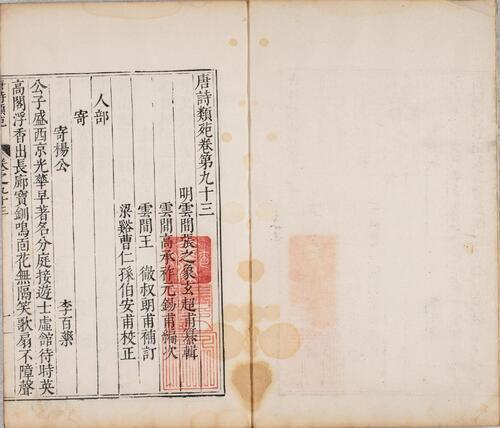 唐詩類苑卷第九十三
明雲間張之象玄超甫彙輯
雲間高承祚元錫甫編次
雲間王　徹叔朗甫補訂
梁谿曹仁孫伯安甫校正
人部
寄
寄楊公
李百藥
公子盛西京光華早著名分庭接遊士虛館待時英
高閣浮香出長廊寶釧鳴面花無隔笑歌扇不障聲
唐詩類苑
卷之九十三